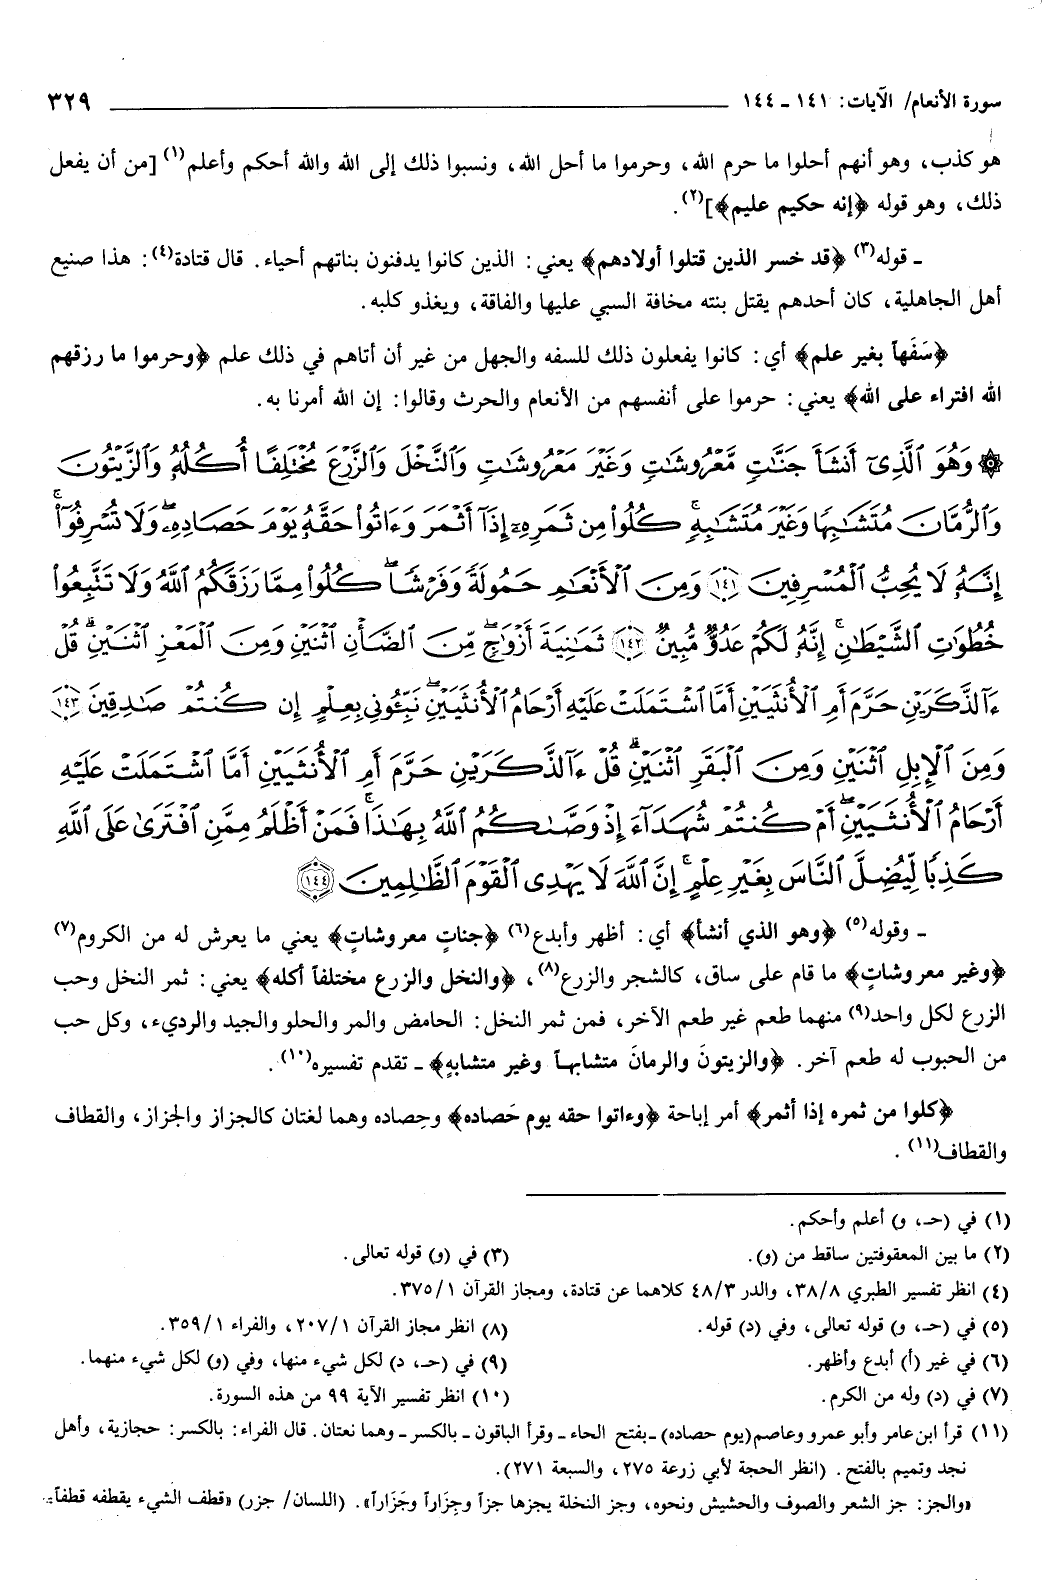 سورة الأنعام/ الآيات: ١٤١ ـ ١٤٤ ٣٢٩
هو كذب، وهو أنهم أحلوا ما حرم الله، وحرموا ما أحل الله، ونسبوا ذلك إلى الله والله أحكم وأعلم(١) [من أن يفعل
ذلك، وهو قوله ﴿إنه حكيم عليم﴾](٢).
ـ قوله(٣) ﴿قد خسر الذين قتلوا أولادهم﴾ يعني: الذين كانوا يدفنون بناتهم أحياء. قال قتادة(٤): هذا صنيع
أهل الجاهلية، كان أحدهم يقتل بنته مخافة السبي عليها والفاقة، ويغذو كلبه.
﴿سَفَهاً بغير علم﴾ أي: كانوا يفعلون ذلك للسفه والجهل من غير أن أتاهم في ذلك علم ﴿وحرموا ما رزقهم
الله افتراء على الله﴾ يعني: حرموا على أنفسهم من الأنعام والحرث وقالوا: إن الله أمرنا به.
۞ وَهُوَ ٱلَّذِىٓ أَنشَأَ جَنَّٰتٍ مَّعْرُوشَٰتٍ وَغَيْرَ مَعْرُوشَٰتٍ وَٱلنَّخْلَ وَٱلزَّرْعَ مُخْتَلِفًا أُكُلُهُۥ وَٱلزَّيْتُونَ
وَٱلرُّمَّانَ مُتَشَٰبِهًا وَغَيْرَ مُتَشَٰبِهٍ ۚ كُلُوا۟ مِن ثَمَرِهِۦٓ إِذَآ أَثْمَرَ وَءَاتُوا۟ حَقَّهُۥ يَوْمَ حَصَادِهِۦ ۖ وَلَا تُسْرِفُوٓا۟ ۚ
إِنَّهُۥ لَا يُحِبُّ ٱلْمُسْرِفِينَ ١٤١ وَمِنَ ٱلْأَنْعَٰمِ حَمُولَةً وَفَرْشًا ۚ كُلُوا۟ مِمَّا رَزَقَكُمُ ٱللَّهُ وَلَا تَتَّبِعُوا۟
خُطُوَٰتِ ٱلشَّيْطَٰنِ ۚ إِنَّهُۥ لَكُمْ عَدُوٌّ مُّبِينٌ ١٤٢ ثَمَٰنِيَةَ أَزْوَٰجٍ ۖ مِّنَ ٱلضَّأْنِ ٱثْنَيْنِ وَمِنَ ٱلْمَعْزِ ٱثْنَيْنِ ۗ قُلْ
ءَآلذَّكَرَيْنِ حَرَّمَ أَمِ ٱلْأُنثَيَيْنِ أَمَّا ٱشْتَمَلَتْ عَلَيْهِ أَرْحَامُ ٱلْأُنثَيَيْنِ ۖ نَبِّـُٔونِى بِعِلْمٍ إِن كُنتُمْ صَٰدِقِينَ ١٤٣
وَمِنَ ٱلْإِبِلِ ٱثْنَيْنِ وَمِنَ ٱلْبَقَرِ ٱثْنَيْنِ ۗ قُلْ ءَآلذَّكَرَيْنِ حَرَّمَ أَمِ ٱلْأُنثَيَيْنِ أَمَّا ٱشْتَمَلَتْ عَلَيْهِ
أَرْحَامُ ٱلْأُنثَيَيْنِ ۖ أَمْ كُنتُمْ شُهَدَآءَ إِذْ وَصَّىٰكُمُ ٱللَّهُ بِهَٰذَا ۚ فَمَنْ أَظْلَمُ مِمَّنِ ٱفْتَرَىٰ عَلَى ٱللَّهِ
كَذِبًا لِّيُضِلَّ ٱلنَّاسَ بِغَيْرِ عِلْمٍ ۗ إِنَّ ٱللَّهَ لَا يَهْدِى ٱلْقَوْمَ ٱلظَّٰلِمِينَ ١٤٤
ـ وقوله(٥) ﴿وهو الذي أنشأ﴾ أي: أظهر وأبدع(٦) ﴿جناتٍ معروشاتٍ﴾ يعني ما يعرش له من الكروم(٧)
﴿وغير معروشاتٍ﴾ ما قام على ساق، كالشجر والزرع(٨)، ﴿والنخل والزرع مختلفاً أكله﴾ يعني: ثمر النخل وحب
الزرع لكل واحد(٩) منهما طعم غير طعم الآخر، فمن ثمر النخل: الحامض والمر والحلو والجيد والرديء، وكل حب
من الحبوب له طعم آخر. ﴿والزيتونَ والرمانَ متشابهاً وغير متشابهٍ﴾ ـ تقدم تفسيره(١٠).
﴿كلوا من ثمره إذا أثمر﴾ أمر إباحة ﴿وءاتوا حقه يوم حَصاده﴾ وحِصاده وهما لغتان كالجزاز والجزاز، والقطاف
والقطاف(١١).
(١) في (حـ، و) أعلم وأحكم.
(٢) ما بين المعقوفتين ساقط من (و). (٣) في (و) قوله تعالى.
(٤) انظر تفسير الطبري ٣٨/٨، والدر ٤٨/٣ كلاهما عن قتادة، ومجاز القرآن ٣٧٥/١.
(٥) في (حـ، و) قوله تعالى، وفي (د) قوله. (٨) انظر مجاز القرآن ٢٠٧/١، والفراء ٣٥٩/١.
(٦) في غير (أ) أبدع وأظهر. (٩) في (حـ، د) لكل شيء منها، وفي (و) لكل شيء منهما.
(٧) في (د) وله من الكرم. (١٠) انظر تفسير الآية ٩٩ من هذه السورة.
(١١) قرأ ابن عامر وأبو عمرو وعاصم (يوم حصاده) ـ بفتح الحاء ـ وقرأ الباقون ـ بالكسر ـ وهما نعتان. قال الفراء: بالكسر: حجازية، وأهل
نجد وتميم بالفتح. (انظر الحجة لأبي زرعة ٢٧٥، والسبعة ٢٧١).
«والجز: جز الشعر والصوف والحشيش ونحوه، وجز النخلة يجزها جزاً وجِزَاراً وجَزَاراً». (اللسان/ جزر) «قطف الشيء يقطفه قطفاً